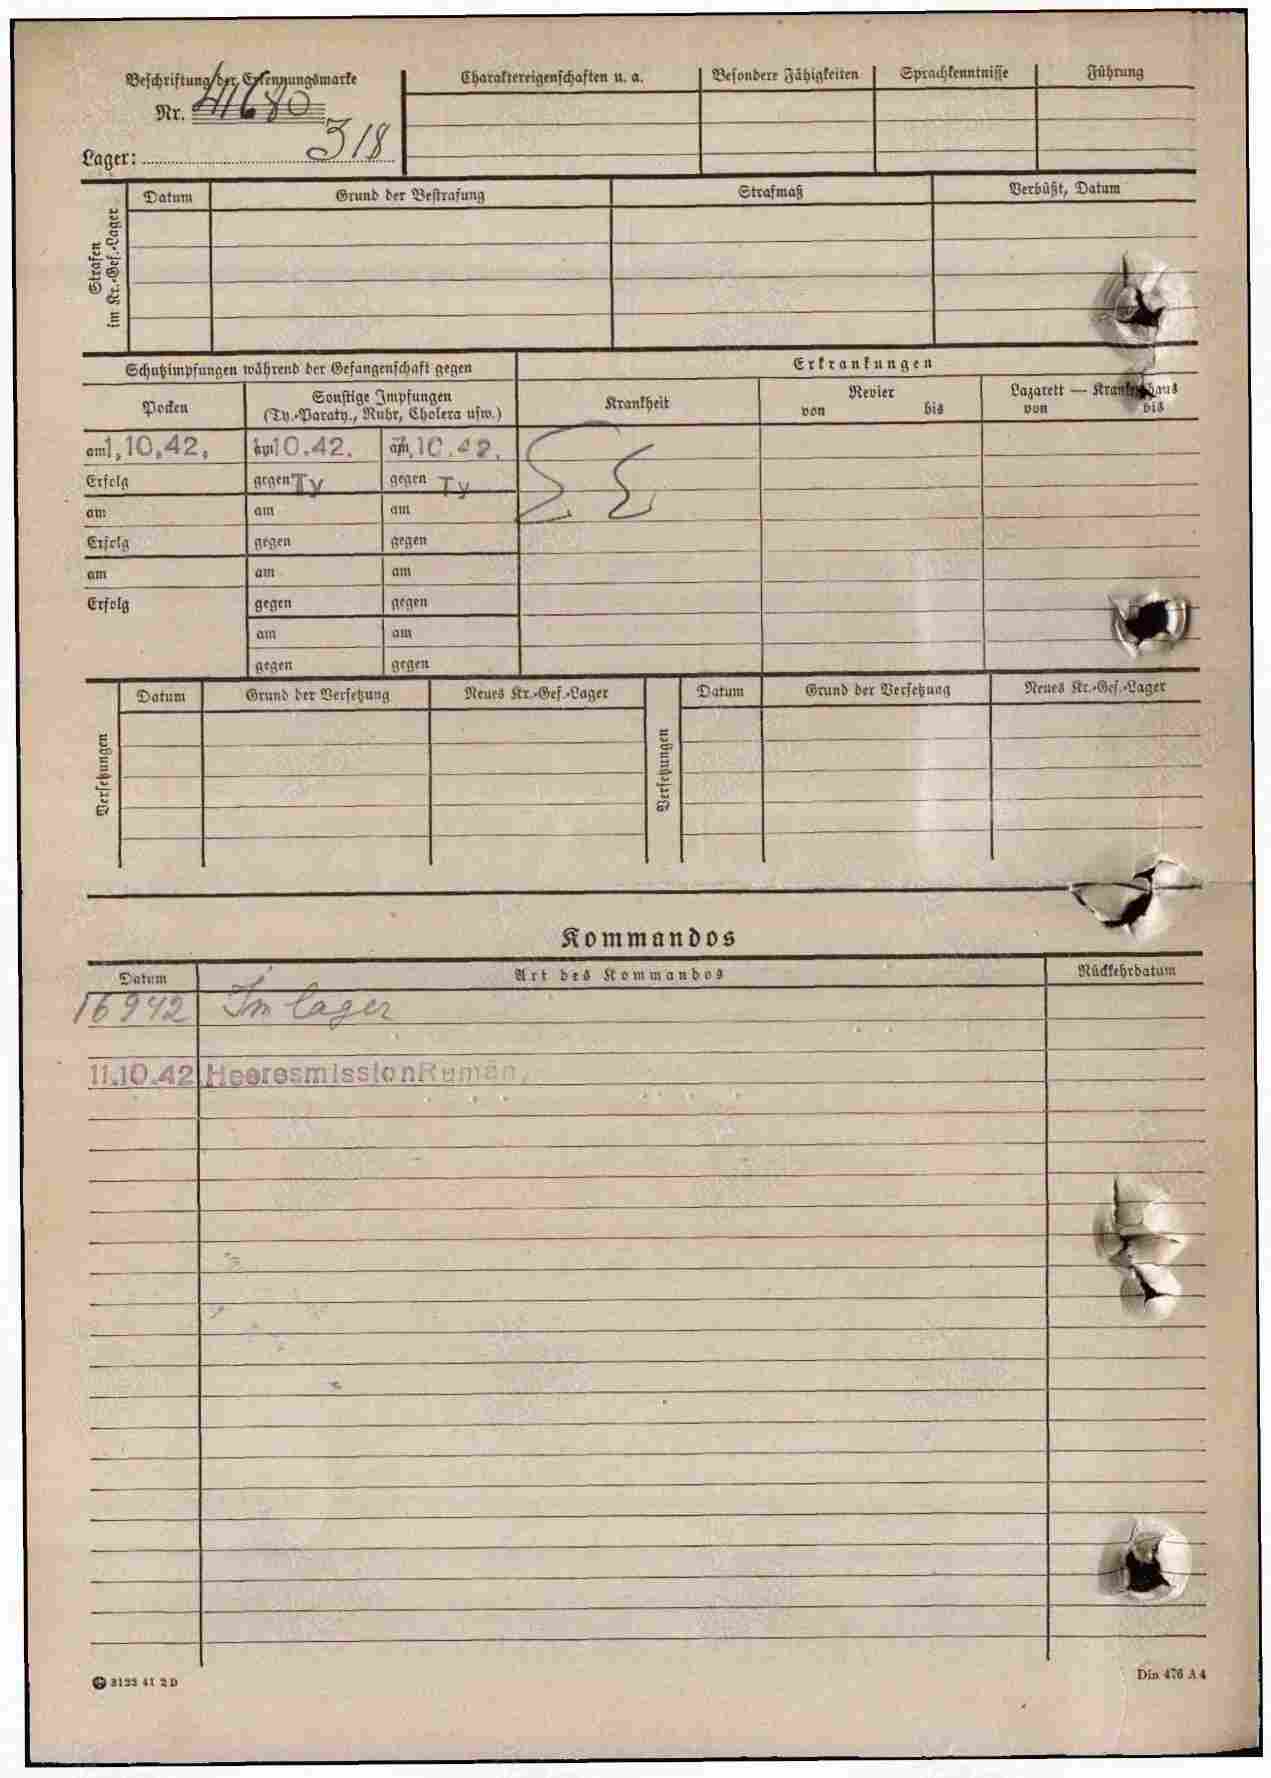 Beschriftung der Erkennungsmarke
Nr. 41680
Lager: 318
Charaktereigenschaften u. a.
Besondere Fähigkeiten
Sprachkenntnisse
Führung
Strafen
im Kr.-Gef.-Lager
Datum
Grund der Bestrafung
Strafmaß
Verbüßt, Datum
Schutzimpfungen während der Gefangenschaft gegen
Erkrankungen
Pocken
Sonstige Impfungen
(Ty.-Paraty., Ruhr, Cholera usw.)
Krankheit
Revier
von bis
Lazarett — Krankenhaus
von bis
am 1.10.42. am 10.42. am 10.42.
Erfolg gegen Ty gegen Ty
am am am
Erfolg gegen gegen
am am am
Erfolg gegen gegen
am am
gegen gegen
Versetzungen
Datum Grund der Versetzung Neues Kr.-Gef.-Lager
Versetzungen
Datum Grund der Versetzung Neues Kr.-Gef.-Lager
Kommandos
Datum Art des Kommandos Rückkehrdatum
16 9 42 Im Lager
11.10.42 Heeresmission Rumän.
3123 41 2 D
Din 476 A 4